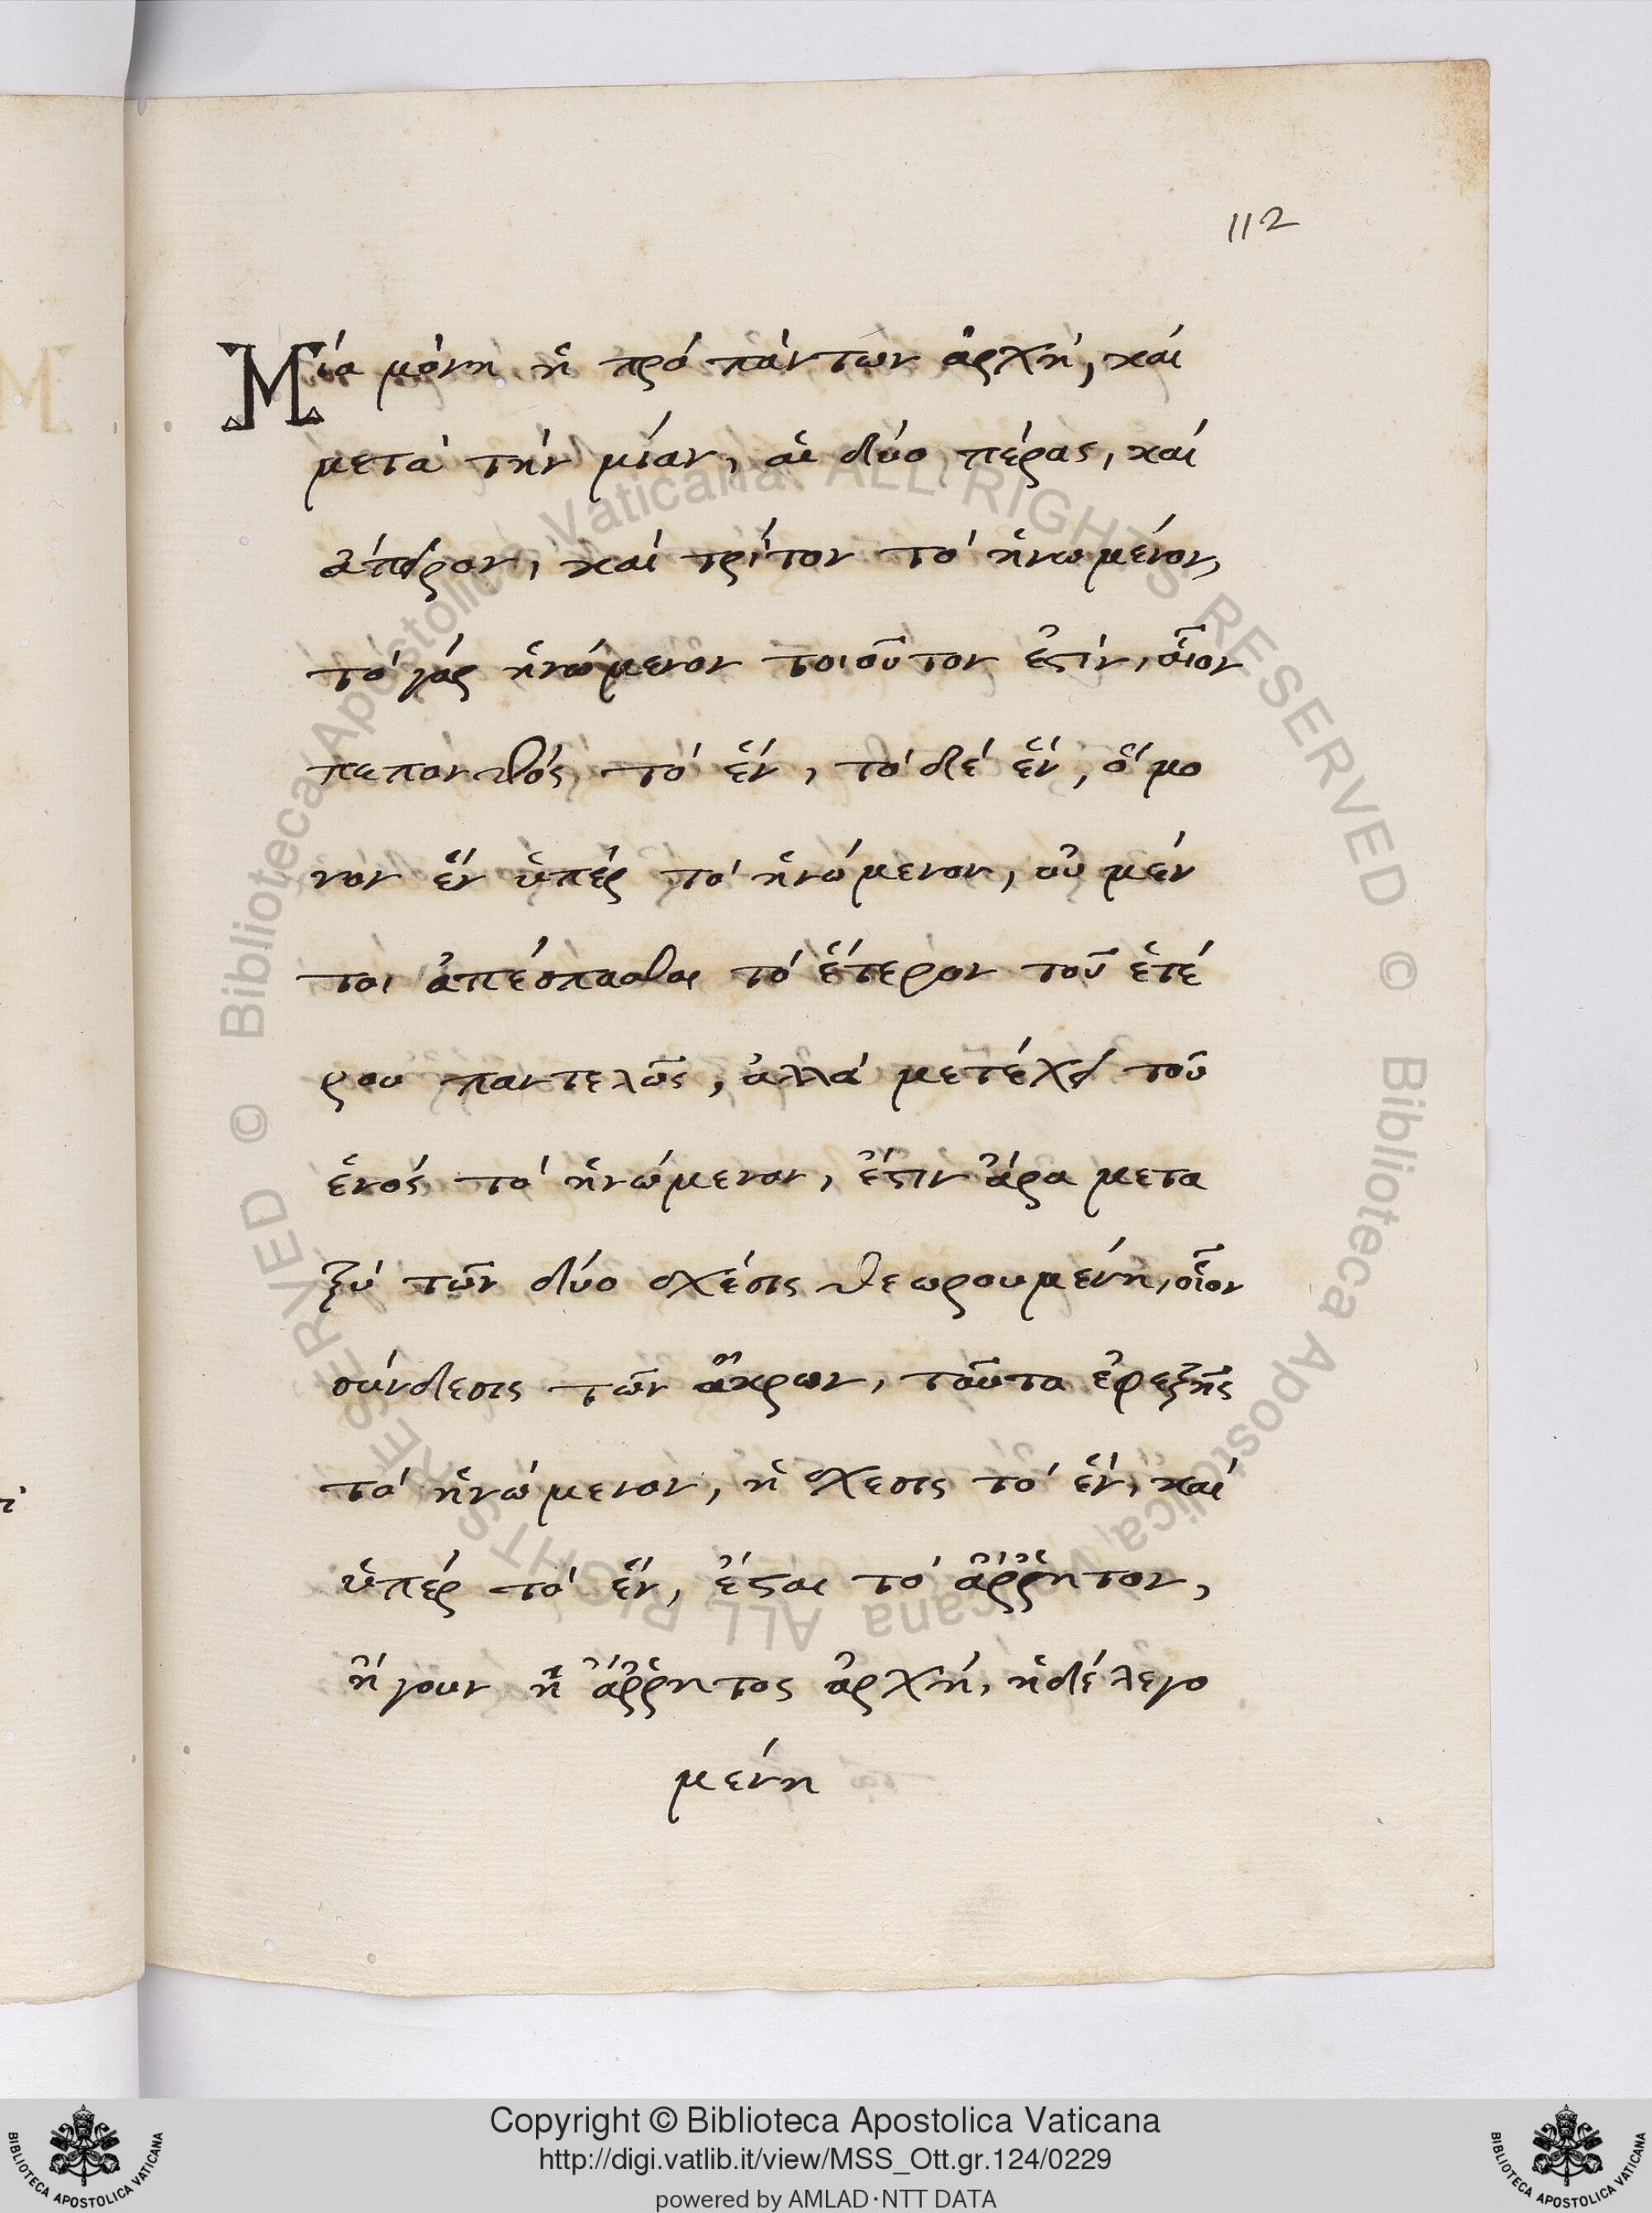 112
Μία μόνη ἡ πρό πάντων ἀρχή, καί
μετά τήν μίαν, αἱ δύο πέρας, καί
ἄπειρον, καί τρίτον τό ἡνωμένον,
τό γάρ ἡνώμενον τοιοῦτον ἐστίν, οἷον
πεπονθός τό ἕν, τό δέ ἕν, ὅ μο
νον ἕν ὑπέρ τό ἡνώμενον, οὐ μέν
τοι ἀπέσπασθαι τό ἕτερον τοῦ ἑτέ
ρου παντελῶς, ἀλλά μετέχει τοῦ
ἑνός τό ἡνώμενον, ἔστιν ἄρα μετα
ξύ τῶν δύο σχέσις θεωρουμένη, οἷον
σύνδεσις τῶν ἄκρων, ταῦτα ἐφεξῆς
τό ἡνώμενον, ἡ σχεσις τό ἕν, καί
ὑπέρ τό ἕν, ἔσται τό ἄῤῥητον,
ἤγουν ἡ ἄῤῥητος ἀρχή, ἡ δέ λεγο
μένη
© Biblioteca Apostolica Vaticana ALL RIGHTS RESERVED
© Biblioteca Apostolica Vaticana ALL RIGHTS RESERVED
Copyright © Biblioteca Apostolica Vaticana
http://digi.vatlib.it/view/MSS_Ott.gr.124/0229
powered by AMLAD·NTT DATA
BIBLIOTECA APOSTOLICA VATICANA
BIBLIOTECA APOSTOLICA VATICANA